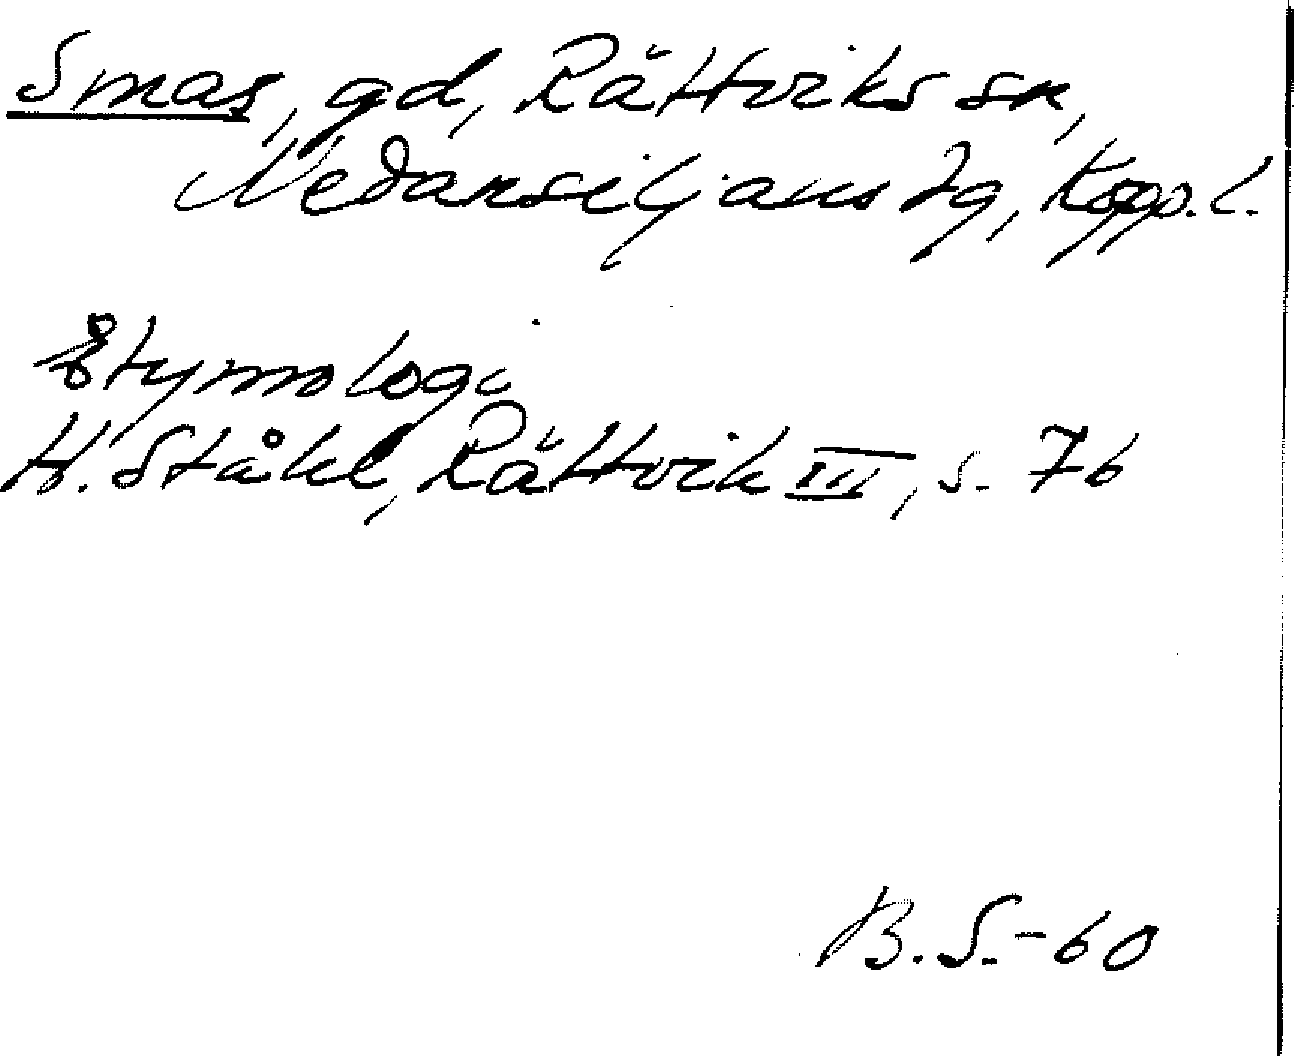 Smas, gd, Rättviks sn,
Nedansiljans tg, Kopp. l.
Etymologi
H. Ståhl, Rättvik III, s. 76
B. S. - 60